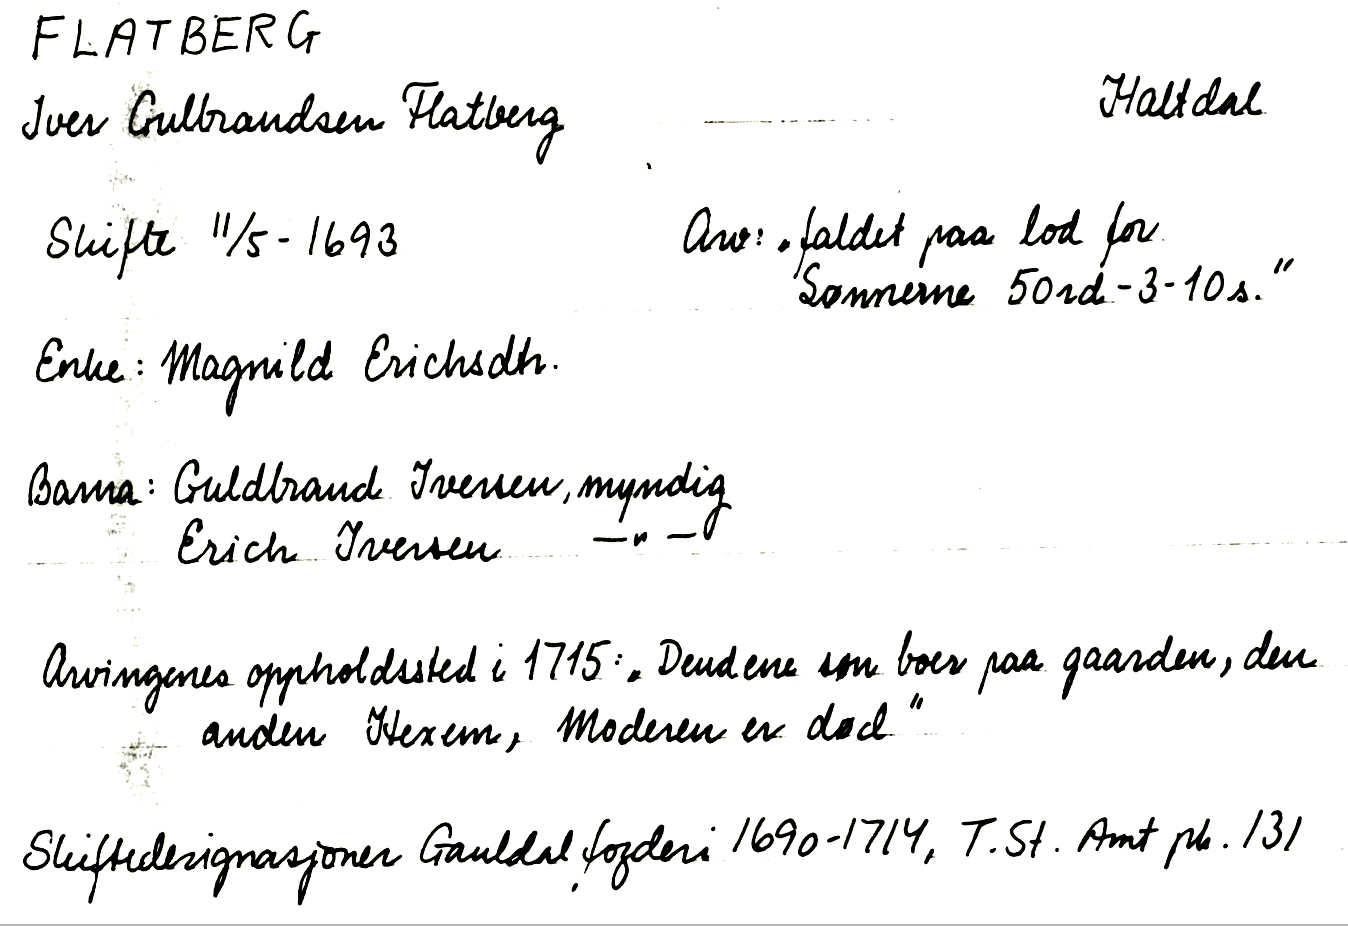 FLATBERG
Iver Gulbrandsen Flatberg Haltdal
Skifte 11/5-1693 Arv: „faldet paa lod for
Sønnerne 50rd-3-10s."
Enke: Magnild Erichsdtr.
Barna: Guldbrand Iversen, myndig
Erich Iversen —"—
Arvingenes oppholdssted i 1715: „Dend ene søn boer paa gaarden, den
anden Hexem, Moderen er død"
Skiftedesignasjoner Gauldal fogderi 1690-1714, T.St. Amt pk. 131